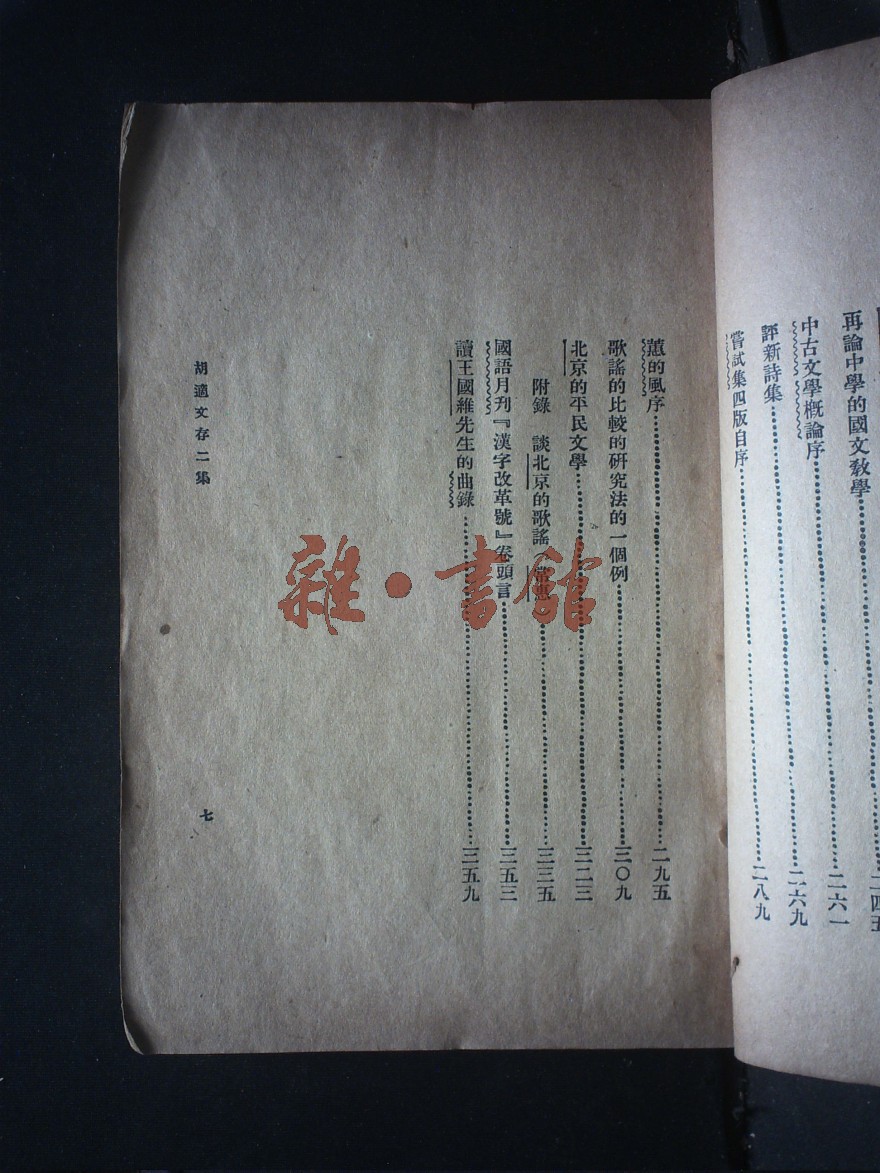 再論中學的國文教學……二四五
中古文學概論序……二六一
評新詩集……二六九
嘗試集四版自序……二八九
蕙的風序……二九五
歌謠的比較的研究法的一個例……三〇九
北京的平民文學……三二三
附錄 談北京的歌謠 常惠……三三五
國語月刊『漢字改革號』卷頭言……三五三
讀王國維先生的曲錄……三五九
胡適文存二集
七
雜·書館